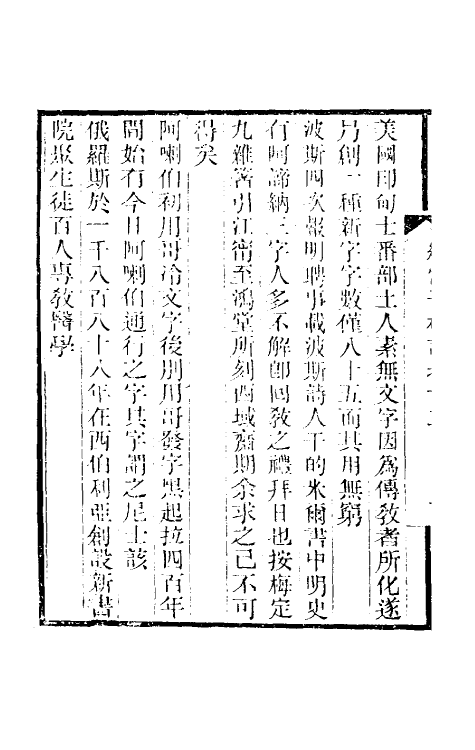 美國印甸士番部土人素無文字因為傳敎者所化遂
乃創一種新字字數僅八十五而其用無窮
波斯四次報明聘事載波斯詩人干的米爾書中明史
有阿諦納二字人多不解卽回敎之禮拜日也按梅定
九雜著引江甯至鴻堂所刻西域齋期余求之已不可
得矣
阿喇伯初用哥洽文字後別用哥發字黑起拉四百年
間始有今日阿喇伯通行之字其字謂之尼士該
俄羅斯於一千八百八十八年在西伯利亞創設新書
院聚生徒百人專敎醫學